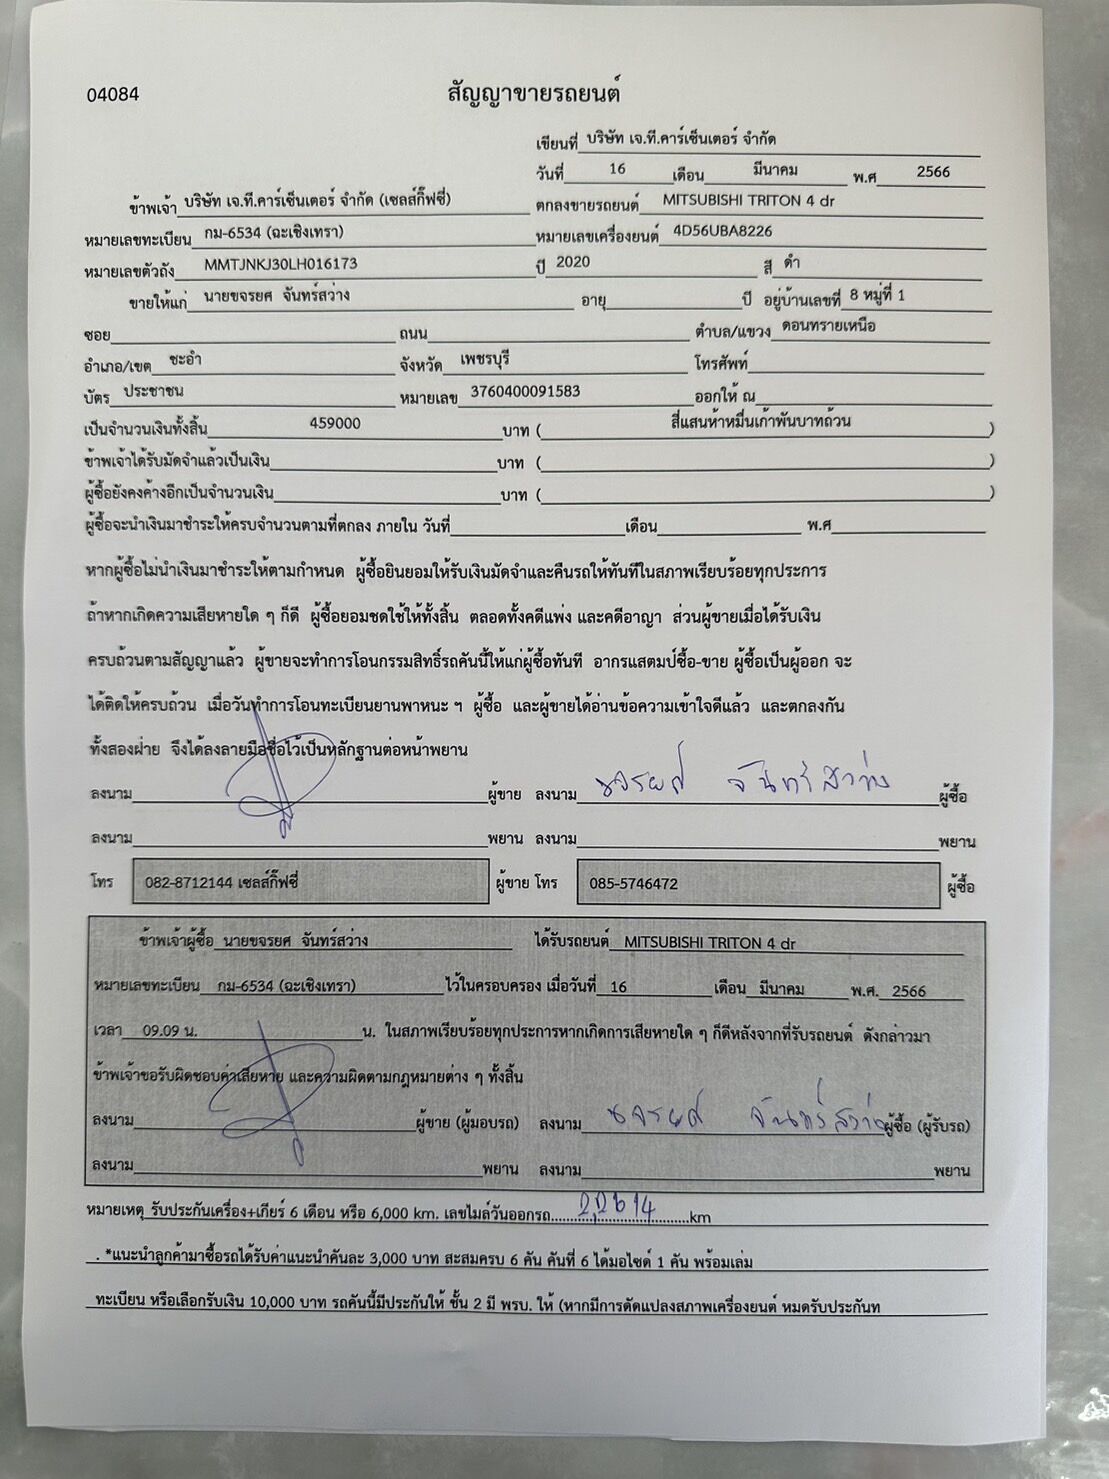 04084
สัญญาขายรถยนต์
เขียนที่ บริษัท เจ.ที.คาร์เซ็นเตอร์ จำกัด
วันที่ 16 เดือน มีนาคม พ.ศ 2566
ข้าพเจ้า บริษัท เจ.ที.คาร์เซ็นเตอร์ จำกัด (เซลส์กิ๊ฟซี่) ตกลงขายรถยนต์ MITSUBISHI TRITON 4 dr
หมายเลขทะเบียน กม-6534 (ฉะเชิงเทรา) หมายเลขเครื่องยนต์ 4D56UBA8226
หมายเลขตัวถัง MMTJNKJ30LH016173 ปี 2020 สี ดำ
ขายให้แก่ นายขจรยศ จันทร์สว่าง อายุ ปี อยู่บ้านเลขที่ 8 หมู่ที่ 1
ซอย ถนน ตำบล/แขวง ดอนทรายเหนือ
อำเภอ/เขต ชะอำ จังหวัด เพชรบุรี โทรศัพท์
บัตร ประชาชน หมายเลข 3760400091583 ออกให้ ณ
เป็นจำนวนเงินทั้งสิ้น 459000 บาท ( สี่แสนห้าหมื่นเก้าพันบาทถ้วน )
ข้าพเจ้าได้รับมัดจำแล้วเป็นเงิน บาท ( )
ผู้ซื้อยังคงค้างอีกเป็นจำนวนเงิน บาท ( )
ผู้ซื้อจะนำเงินมาชำระให้ครบจำนวนตามที่ตกลง ภายใน วันที่ เดือน พ.ศ
หากผู้ซื้อไม่นำเงินมาชำระให้ตามกำหนด ผู้ซื้อยินยอมให้รับเงินมัดจำและคืนรถให้ทันทีในสภาพเรียบร้อยทุกประการ
ถ้าหากเกิดความเสียหายใด ๆ ก็ดี ผู้ซื้อยอมชดใช้ให้ทั้งสิ้น ตลอดทั้งคดีแพ่ง และคดีอาญา ส่วนผู้ขายเมื่อได้รับเงิน
ครบถ้วนตามสัญญาแล้ว ผู้ขายจะทำการโอนกรรมสิทธิ์รถคันนี้ให้แก่ผู้ซื้อทันที อากรแสตมป์ซื้อ-ขาย ผู้ซื้อเป็นผู้ออก จะ
ได้ติดให้ครบถ้วน เมื่อวันทำการโอนทะเบียนยานพาหนะ ฯ ผู้ซื้อ และผู้ขายได้อ่านข้อความเข้าใจดีแล้ว และตกลงกัน
ทั้งสองฝ่าย จึงได้ลงลายมือชื่อไว้เป็นหลักฐานต่อหน้าพยาน
ลงนาม ผู้ขาย ลงนาม ขจรยศ จันทร์สว่าง ผู้ซื้อ
ลงนาม พยาน ลงนาม พยาน
โทร 082-8712144 เซลส์กิ๊ฟซี่ ผู้ขาย โทร 085-5746472 ผู้ซื้อ
ข้าพเจ้าผู้ซื้อ นายขจรยศ จันทร์สว่าง ได้รับรถยนต์ MITSUBISHI TRITON 4 dr
หมายเลขทะเบียน กม-6534 (ฉะเชิงเทรา) ไว้ในครอบครอง เมื่อวันที่ 16 เดือน มีนาคม พ.ศ. 2566
เวลา 09.09 น. น. ในสภาพเรียบร้อยทุกประการหากเกิดการเสียหายใด ๆ ก็ดีหลังจากที่รับรถยนต์ ดังกล่าวมา
ข้าพเจ้าขอรับผิดชอบค่าเสียหาย และความผิดตามกฎหมายต่าง ๆ ทั้งสิ้น
ลงนาม ผู้ขาย (ผู้มอบรถ) ลงนาม ขจรยศ จันทร์สว่าง ผู้ซื้อ (ผู้รับรถ)
ลงนาม พยาน ลงนาม พยาน
หมายเหตุ รับประกันเครื่อง+เกียร์ 6 เดือน หรือ 6,000 km. เลขไมล์วันออกรถ............22614........km
. *แนะนำลูกค้ามาซื้อรถได้รับค่าแนะนำคันละ 3,000 บาท สะสมครบ 6 คัน คันที่ 6 ได้มอไซด์ 1 คัน พร้อมเล่ม
ทะเบียน หรือเลือกรับเงิน 10,000 บาท รถคันนี้มีประกันให้ ชั้น 2 มี พรบ. ให้ (หากมีการดัดแปลงสภาพเครื่องยนต์ หมดรับประกันท